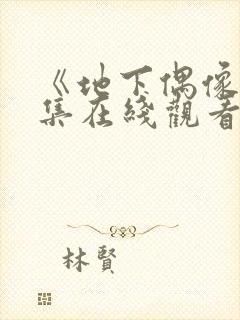 《地下偶像
集在綫觀看
林賢